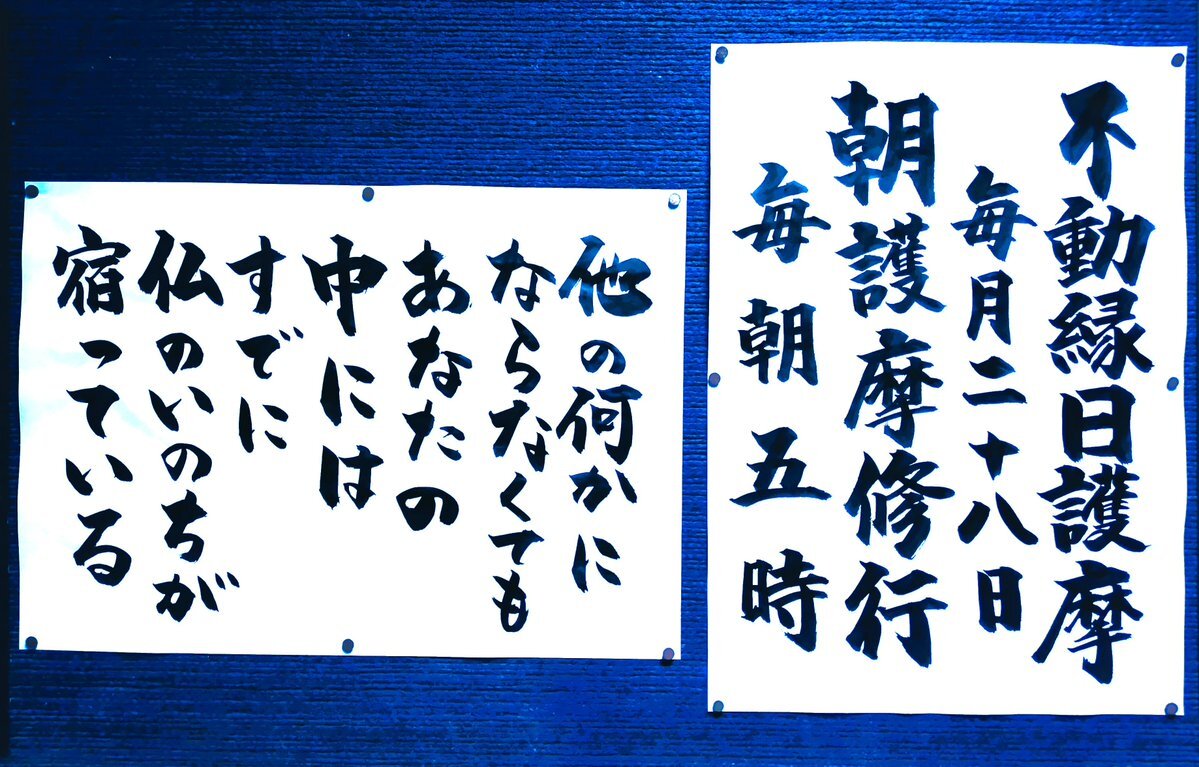 不動縁日護摩
毎月二十八日
朝護摩修行
毎朝五時
他の何かに
ならなくても
あなたの
中には
すでに
仏のいのちが
宿っている